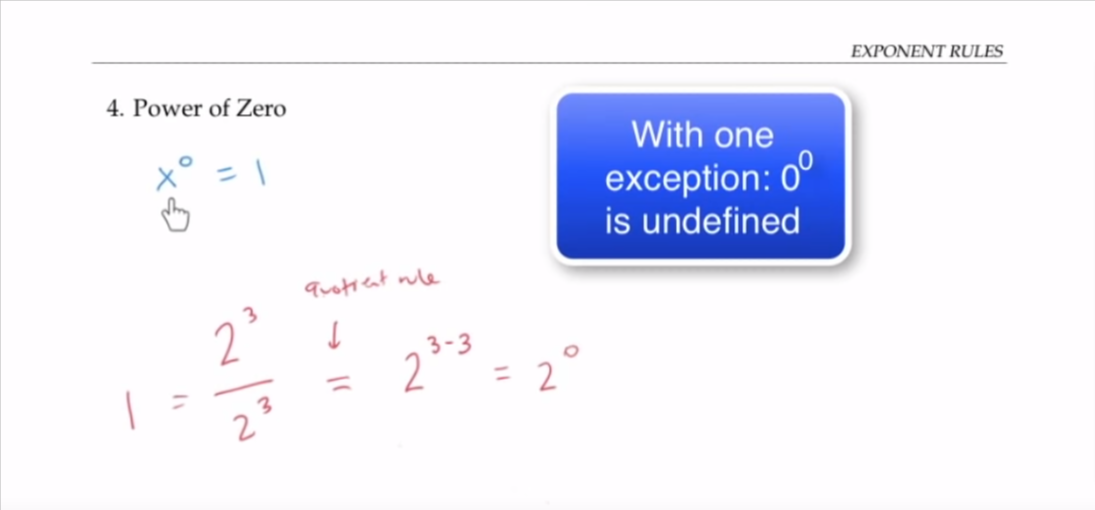 EXPONENT RULES
4. Power of Zero
x⁰ = 1
With one
exception: 0⁰
is undefined
quotient rule
↓
1 = 2³/2³ = 2³⁻³ = 2⁰